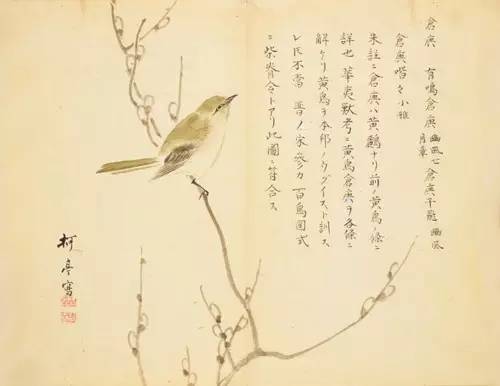 倉庚 有鳴倉庚 豳風七月章 倉庚于飛 豳風
倉庚喈々 小雅
朱註ニ倉庚ハ黄鸝ナリ前ノ黄鳥ノ條ニ
詳也 華夷獸考ニ黄鳥倉庚ヲ各條ニ
解ケリ黄鳥ヲ本邦ノウグイスト訓ス
レ𪜈不當 晋ノ宋 カ百鳥図式
ニ柴脊令トアリ此圖ニ符合ス
柯亭